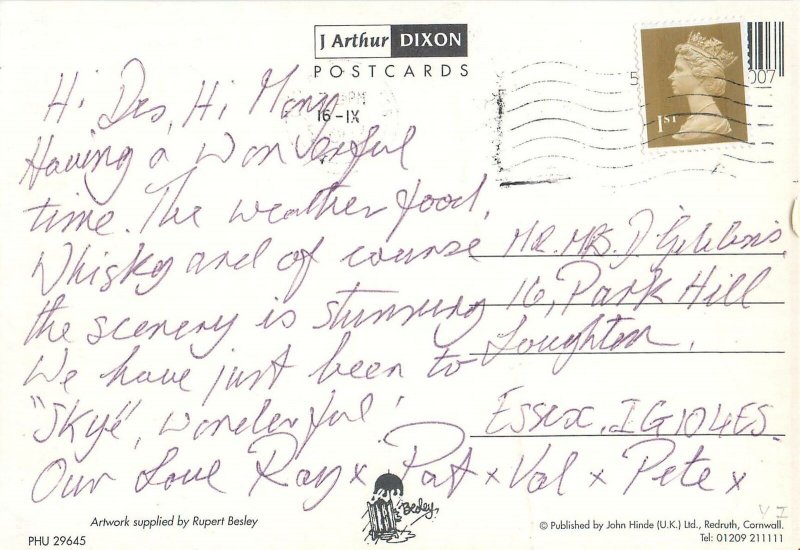 J Arthur DIXON
POSTCARDS
16-IX
5
007
1ST
Hi Des, Hi Mary
Having a wonderful
time. The weather food,
Whisky and of course
the scenery is stunning
We have just been to
"Skye", wonderful!
Our Love Ray x Pat x Val x Pete x
MR. MRS. D Gibbons
16, Park Hill
Loughton.
ESSEX. IG10 4ES.
Besley
Artwork supplied by Rupert Besley
PHU 29645
© Published by John Hinde (U.K.) Ltd., Redruth, Cornwall.
Tel: 01209 211111